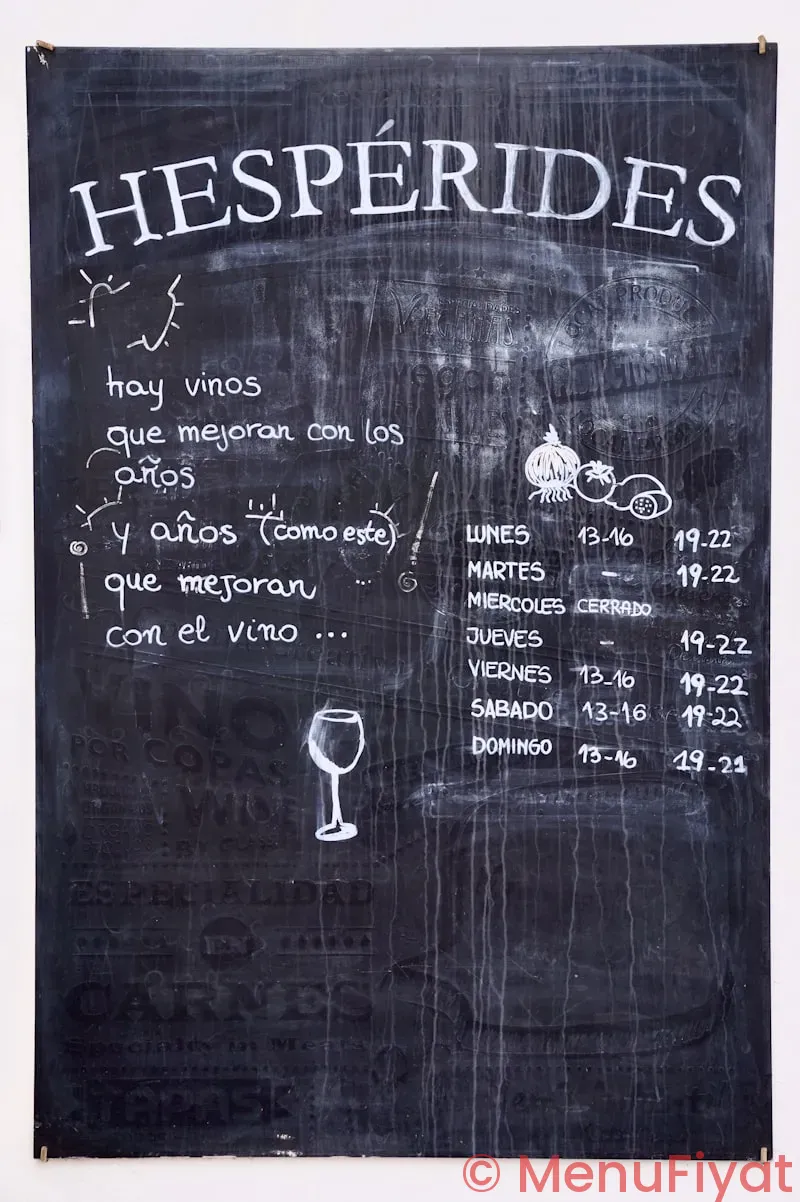 HESPÉRIDES
hay vinos
que mejoran con los
años
y años (como este)
que mejoran
con el vino ...
LUNES 13-16 19-22
MARTES - 19-22
MIERCOLES CERRADO
JUEVES - 19-22
VIERNES 13-16 19-22
SABADO 13-16 19-22
DOMINGO 13-16 19-21
VINO
POR COPAS
WINE
ESPECIALIDAD
EN
CARNES
Specialty in Meats
TAPAS
© MenuFiyat